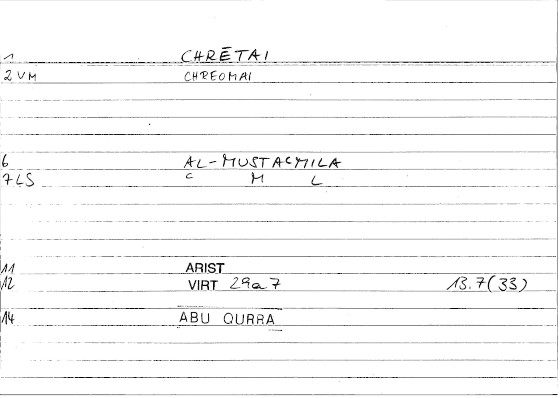 1 CHRĒTAI
2 VM CHREOMAI
6 AL-MUSTAcMILA
7 LS c M L
11 ARIST
12 VIRT 29a7 13.7(33)
14 ABU QURRA